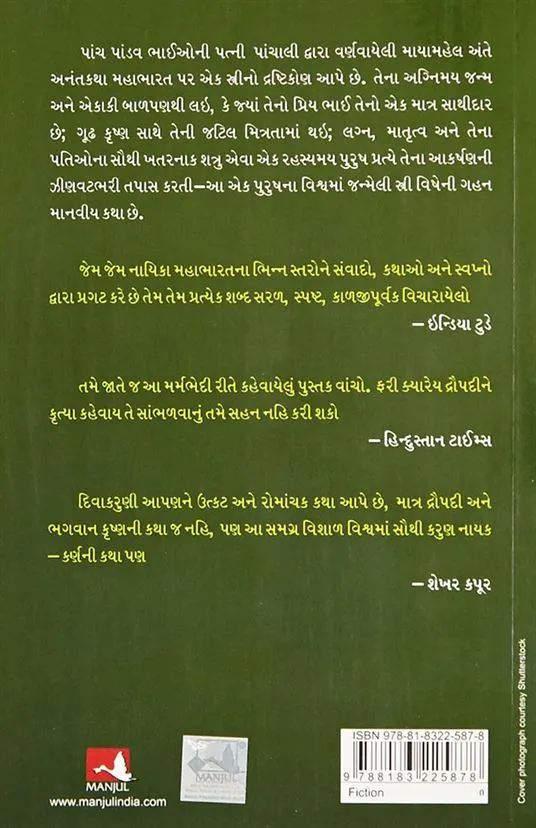 પાંચ પાંડવ ભાઈઓની પત્ની પાંચાલી દ્વારા વર્ણવાયેલી માયામહેલ અંતે
અનંતકથા મહાભારત પર એક સ્ત્રીનો દ્રષ્ટિકોણ આપે છે. તેના અગ્નિમય જન્મ
અને એકાકી બાળપણથી લઇ, કે જ્યાં તેનો પ્રિય ભાઈ તેનો એક માત્ર સાથીદાર
છે; ગૂઢ કૃષ્ણ સાથે તેની જટિલ મિત્રતામાં થઇ; લગ્ન, માતૃત્વ અને તેના
પતિઓના સૌથી ખતરનાક શત્રુ એવા એક રહસ્યમય પુરુષ પ્રત્યે તેના આકર્ષણની
ઝીણવટભરી તપાસ કરતી—આ એક પુરુષના વિશ્વમાં જન્મેલી સ્ત્રી વિષેની ગહન
માનવીય કથા છે.
જેમ જેમ નાયિકા મહાભારતના ભિન્ન સ્તરોને સંવાદો, કથાઓ અને સ્વપ્નો
દ્વારા પ્રગટ કરે છે તેમ તેમ પ્રત્યેક શબ્દ સરળ, સ્પષ્ટ, કાળજીપૂર્વક વિચારાયેલો
– ઇન્ડિયા ટુડે
તમે જાતે જ આ મર્મભેદી રીતે કહેવાયેલું પુસ્તક વાંચો. ફરી ક્યારેય દ્રૌપદીને
કૃત્યા કહેવાય તે સાંભળવાનું તમે સહન નહિ કરી શકો
– હિન્દુસ્તાન ટાઈમ્સ
દિવાકરુણી આપણને ઉત્કટ અને રોમાંચક કથા આપે છે, માત્ર દ્રૌપદી અને
ભગવાન કૃષ્ણની કથા જ નહિ, પણ આ સમગ્ર વિશાળ વિશ્વમાં સૌથી કરુણ નાયક
– કર્ણની કથા પણ
– શેખર કપૂર
Cover photograph courtesy Shutterstock
MANJUL
www.manjulindia.com
MANJUL
ISBN 978-81-8322-587-8
9 788183 225878
Fiction